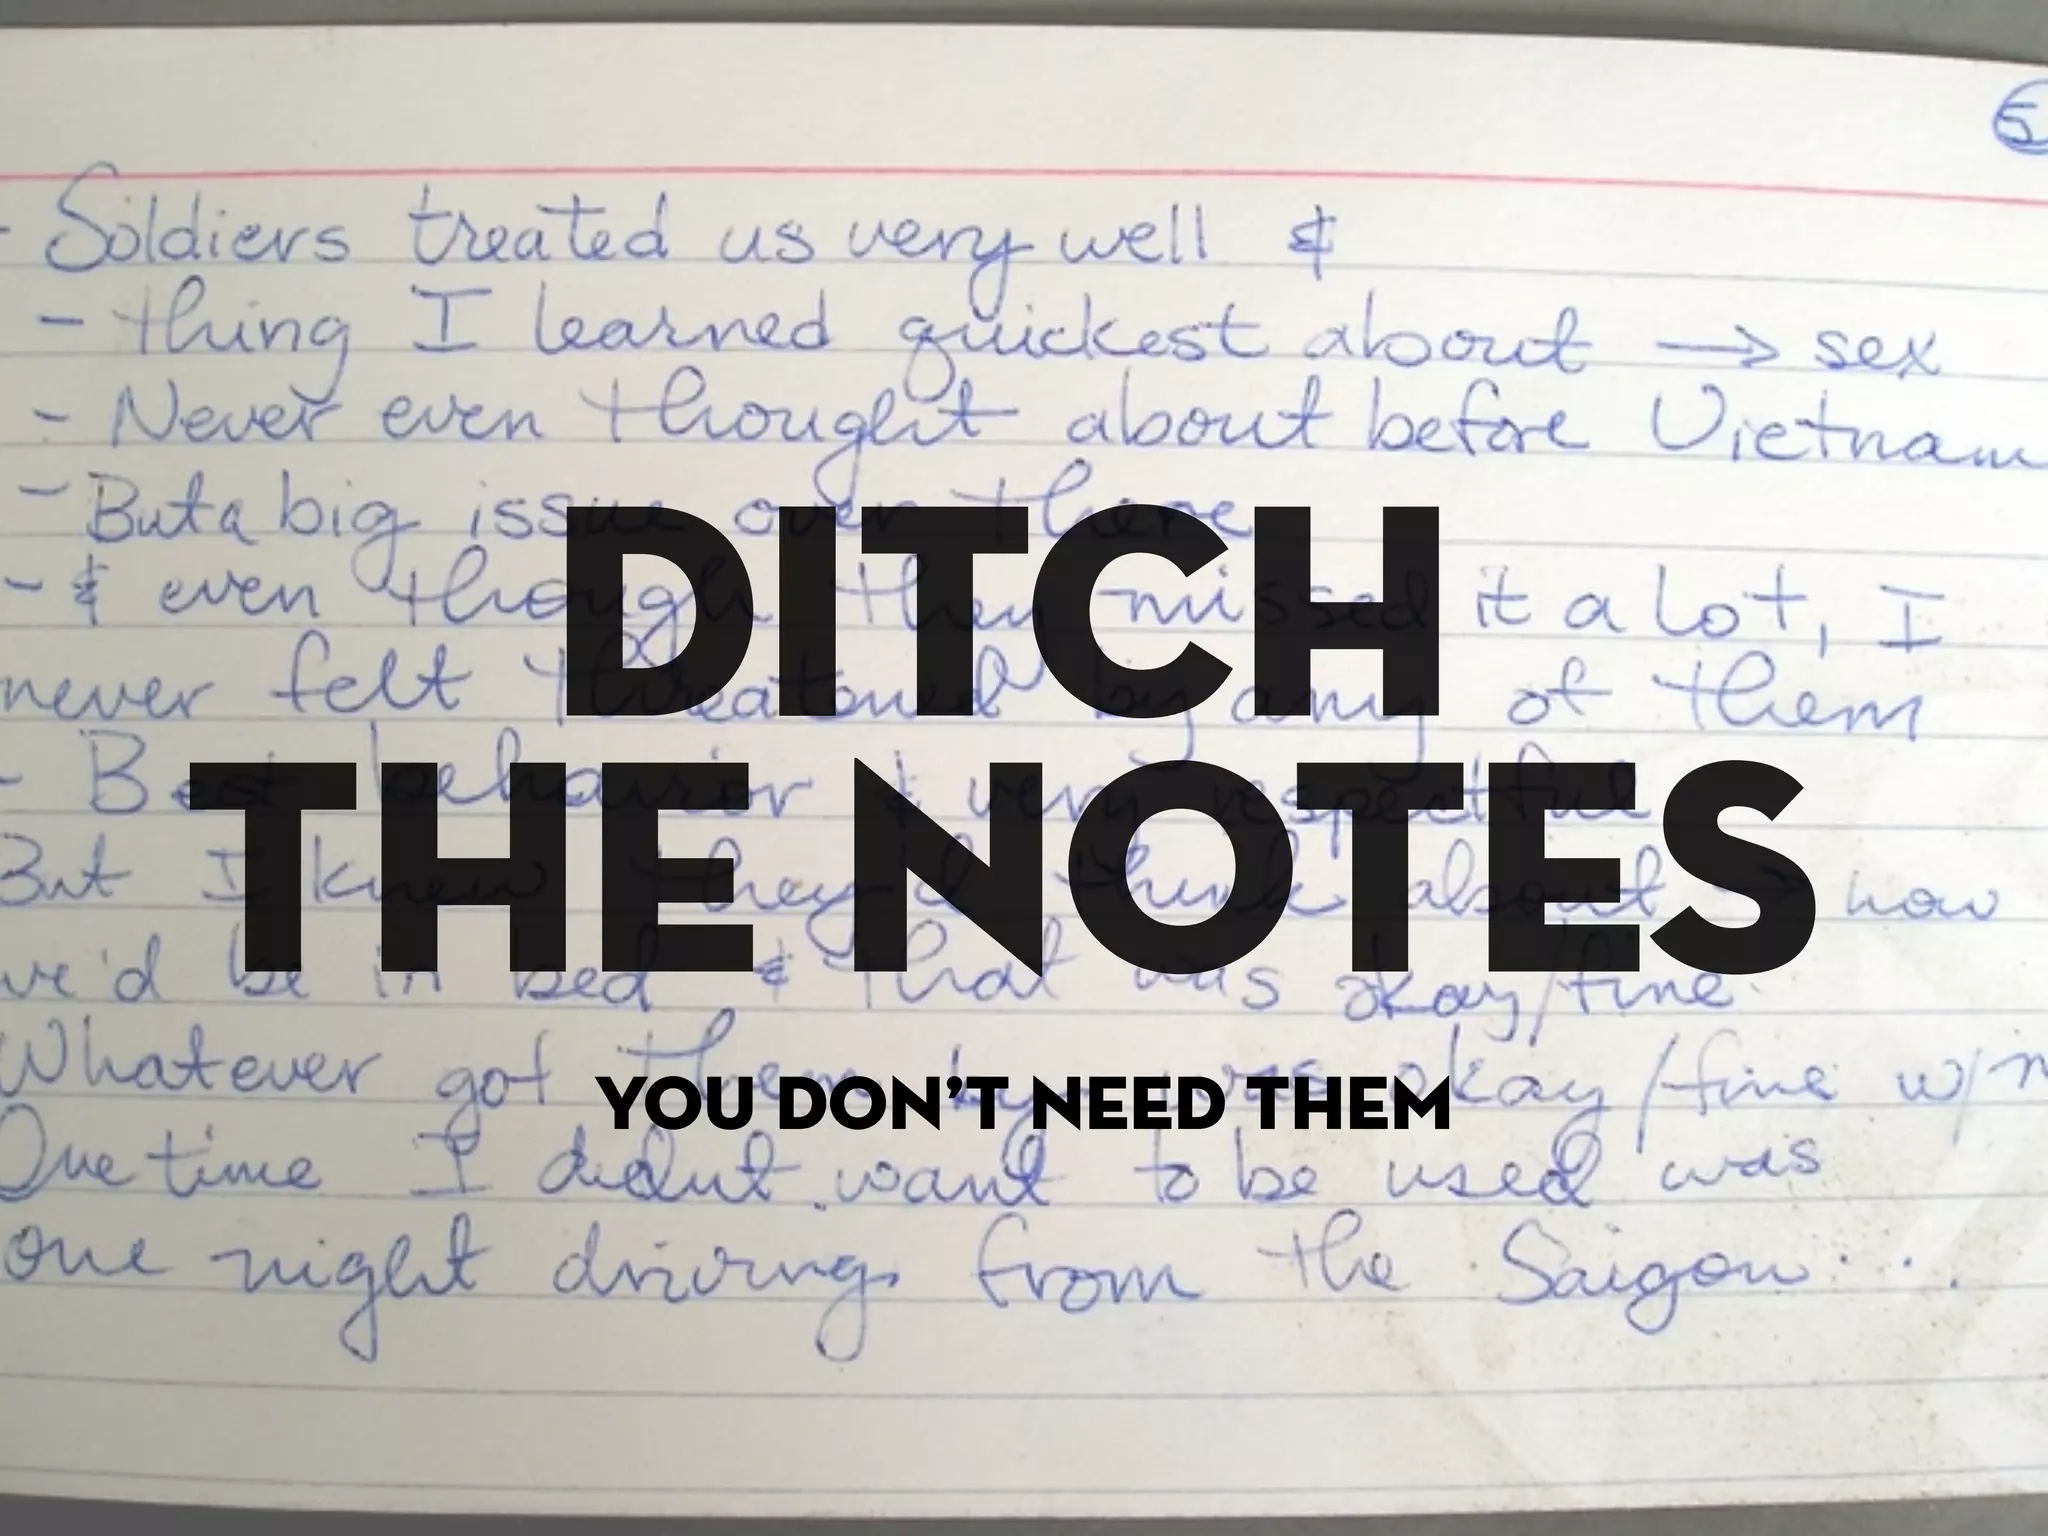 5
- Soldiers treated us very well &
- thing I learned quickest about → sex
- Never even thought about before Vietnam
- But a big issue over there
- & even though they missed it a lot, I
never felt threatened by any of them
- Best behavior & very respectful
But I knew they'd think about → how
we'd be in bed & that was okay/fine.
Whatever got them by was okay/fine w/m
One time I didnt want to be used was
one night driving from the Saigon...
DITCH
THE NOTES
YOU DON'T NEED THEM